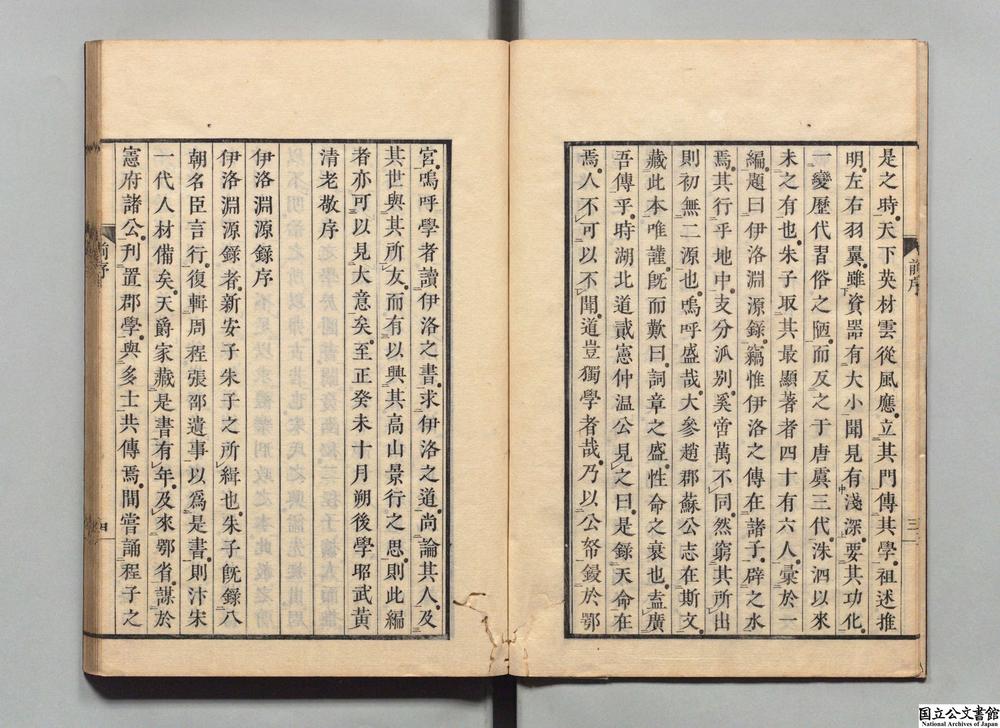 是之時天下英材雲從風應立其門傳其學祖述推
明左右羽翼雖資器有大小聞見有淺深要其功化
一變歷代習俗之陋而反之于唐虞三代洙泗以來
未之有也朱子取其最顯著者四十有六人彙於一
編題曰伊洛淵源錄竊惟伊洛之傳在諸子辟之水
焉其行乎地中支分派別奚啻萬不同然窮其所出
則初無二源也嗚呼盛哉大參趙郡蘇公志在斯文
藏此本唯謹既而歎曰詞章之盛性命之衰也盍廣
吾傳乎時湖北道貳憲仲温公見之曰是錄天命在
焉人不可以不聞道豈獨學者哉乃以公帑鋟於鄂
前序
三
宮嗚呼學者讀伊洛之書求伊洛之道尚論其人及
其世與其所友而有以興其高山景行之思則此編
者亦可以見大意矣至正癸未十月朔後學昭武黃
清老敬序
伊洛淵源錄序
伊洛淵源錄者新安子朱子之所緝也朱子既錄八
朝名臣言行復輯周程張邵遺事以爲是書則汴宋
一代人材備矣天爵家藏是書有年及來鄂省謀於
憲府諸公刊置郡學與多士共傳焉間嘗誦程子之
前序
四
国立公文書館
National Archives of Japan